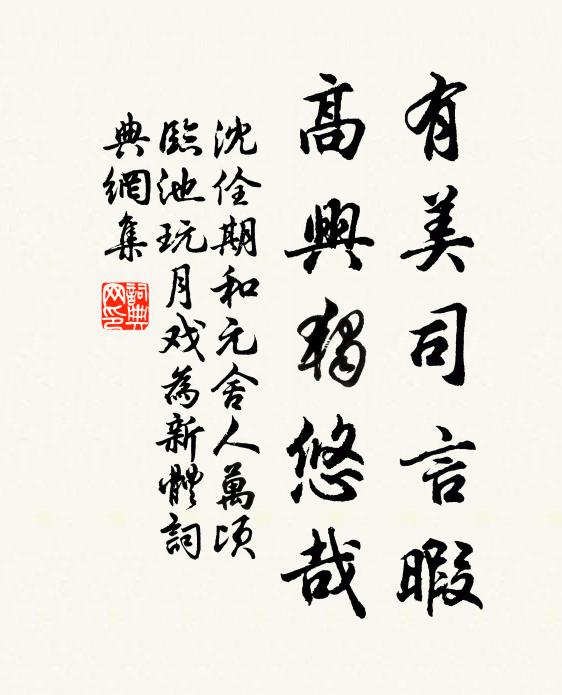 有美司言暇
高興獨悠哉
沈佺期和元舍人萬頃
臨池玩月戏為新體詞
典網集
詞典网印